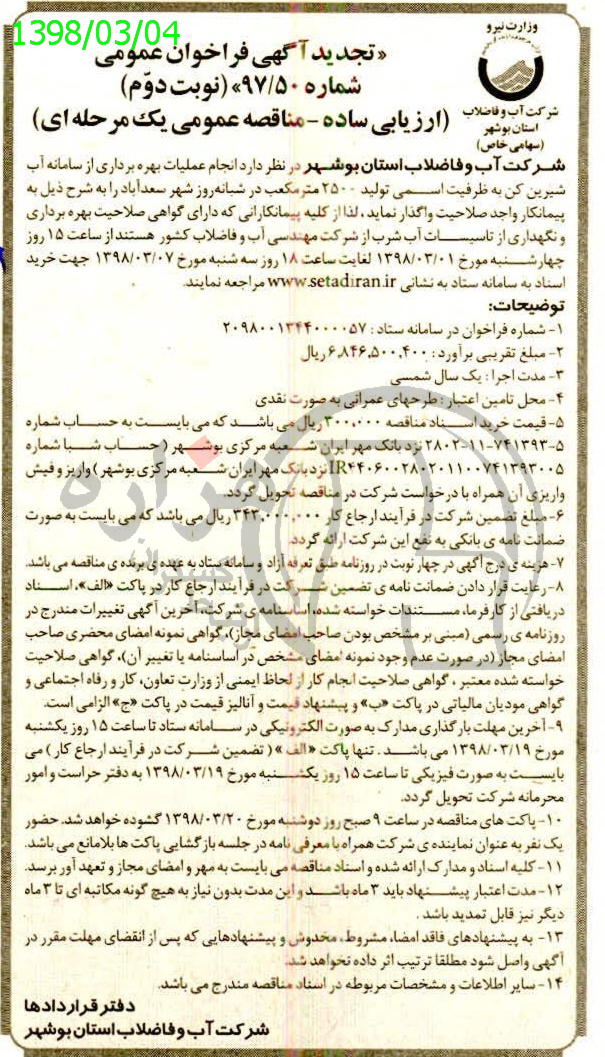 1398/03/04
وزارت نیرو
شرکت آب و فاضلاب
استان بوشهر
(سهامی خاص)
«تجدید آگهی فراخوان عمومی
شماره ۹۷/۵۰» (نوبت دوّم)
(ارزیابی ساده - مناقصه عمومی یک مرحله ای)
شرکت آب و فاضلاب استان بوشهر در نظر دارد انجام عملیات بهره برداری از سامانه آب
شیرین کن به ظرفیت اسمی تولید ۲۵۰۰ مترمکعب در شبانه روز شهر سعدآباد را به شرح ذیل به
پیمانکار واجد صلاحیت واگذار نماید، لذا از کلیه پیمانکارانی که دارای گواهی صلاحیت بهره برداری
و نگهداری از تاسیسات آب شرب از شرکت مهندسی آب و فاضلاب کشور هستند از ساعت ۱۵ روز
چهارشنبه مورخ ۱۳۹۸/۰۳/۰۱ لغایت ساعت ۱۸ روز سه شنبه مورخ ۱۳۹۸/۰۳/۰۷ جهت خرید
اسناد به سامانه ستاد به نشانی www.setadiran.ir مراجعه نمایند.
توضیحات:
۱- شماره فراخوان در سامانه ستاد: ۲۰۹۸۰۰۱۳۴۴۰۰۰۰۵۷
۲- مبلغ تقریبی برآورد: ۶,۸۴۶,۵۰۰,۴۰۰ ریال
۳- مدت اجرا: یک سال شمسی
۴- محل تامین اعتبار: طرحهای عمرانی به صورت نقدی
۵- قیمت خرید اسناد مناقصه ۳۰۰,۰۰۰ ریال می باشد که می بایست به حساب شماره
۵-۷۴۱۳۹۳-۱۱-۲۸۰۲ نزد بانک مهر ایران شعبه مرکزی بوشهر (حساب شبا شماره
IR۴۴۰۶۰۰۲۸۰۲۰۱۱۰۰۷۴۱۳۹۳۰۰۵ نزد بانک مهر ایران شعبه مرکزی بوشهر) واریز و فیش
واریزی آن همراه با درخواست شرکت در مناقصه تحویل گردد.
۶- مبلغ تضمین شرکت در فرآیند ارجاع کار ۳۴۳,۰۰۰,۰۰۰ ریال می باشد که می بایست به صورت
ضمانت نامه ی بانکی به نفع این شرکت ارائه گردد.
۷- هزینه ی درج آگهی در چهار نوبت در روزنامه طبق تعرفه آزاد و سامانه ستاد به عهده ی برنده ی مناقصه می باشد.
۸- رعایت قرار دادن ضمانت نامه ی تضمین شرکت در فرآیند ارجاع کار در پاکت «الف»، اسناد
دریافتی از کارفرما، مستندات خواسته شده، اساسنامه ی شرکت، آخرین آگهی تغییرات مندرج در
روزنامه ی رسمی (مبنی بر مشخص بودن صاحب امضای مجاز)، گواهی نمونه امضای محضری صاحب
امضای مجاز (در صورت عدم وجود نمونه امضای مشخص در اساسنامه یا تغییر آن)، گواهی صلاحیت
خواسته شده معتبر، گواهی صلاحیت انجام کار از لحاظ ایمنی از وزارت تعاون، کار و رفاه اجتماعی و
گواهی مودیان مالیاتی در پاکت «ب» و پیشنهاد قیمت و آنالیز قیمت در پاکت «ج» الزامی است.
۹- آخرین مهلت بارگذاری مدارک به صورت الکترونیکی در سامانه ستاد تا ساعت ۱۵ روز یکشنبه
مورخ ۱۳۹۸/۰۳/۱۹ می باشد. تنها پاکت «الف» (تضمین شرکت در فرآیند ارجاع کار) می
بایست به صورت فیزیکی تا ساعت ۱۵ روز یکشنبه مورخ ۱۳۹۸/۰۳/۱۹ به دفتر حراست و امور
محرمانه شرکت تحویل گردد.
۱۰- پاکت های مناقصه در ساعت ۹ صبح روز دوشنبه مورخ ۱۳۹۸/۰۳/۲۰ گشوده خواهد شد. حضور
یک نفر به عنوان نماینده ی شرکت همراه با معرفی نامه در جلسه بازگشایی پاکت ها بلامانع می باشد.
۱۱- کلیه اسناد و مدارک ارائه شده و اسناد مناقصه می بایست به مهر و امضای مجاز و تعهد آور برسد.
۱۲- مدت اعتبار پیشنهاد باید ۳ ماه باشد و این مدت بدون نیاز به هیچ گونه مکاتبه ای تا ۳ ماه
دیگر نیز قابل تمدید باشد.
۱۳- به پیشنهادهای فاقد امضا، مشروط، مخدوش و پیشنهادهایی که پس از انقضای مهلت مقرر در
آگهی واصل شود مطلقا ترتیب اثر داده نخواهد شد.
۱۴- سایر اطلاعات و مشخصات مربوطه در اسناد مناقصه مندرج می باشد.
دفتر قراردادها
شرکت آب و فاضلاب استان بوشهر
هزاره